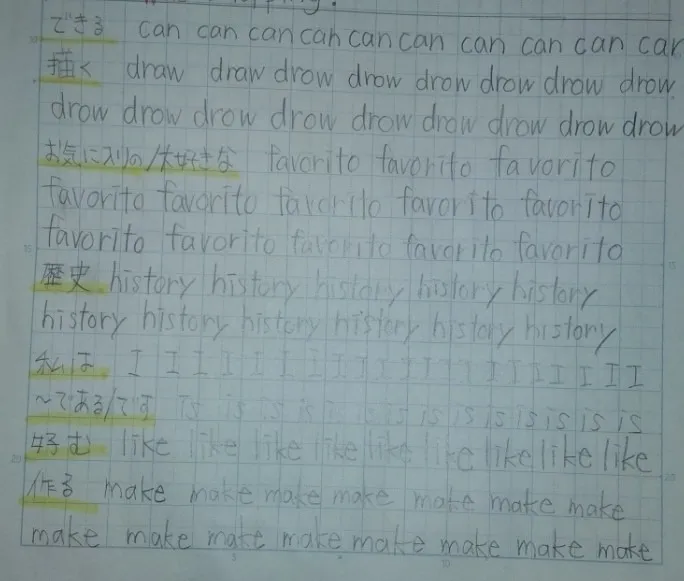 できる can can can can can can can can can can
描く draw draw drow drow drow drow drow drow
drow drow drow drow drow drow drow drow drow
お気に入りの/大好きな favorito favorito favorito
favorito favorito favorito favorito favorito
favorito favorito favorito favorito favorito
歴史 history history history history history
history history history history history history
私は I I I I I I I I I I I I I I I I I I
～である/です is is is is is is is is is is is is
好む like like like like like like like like like
作る make make make make make make make
make make make make make make make make